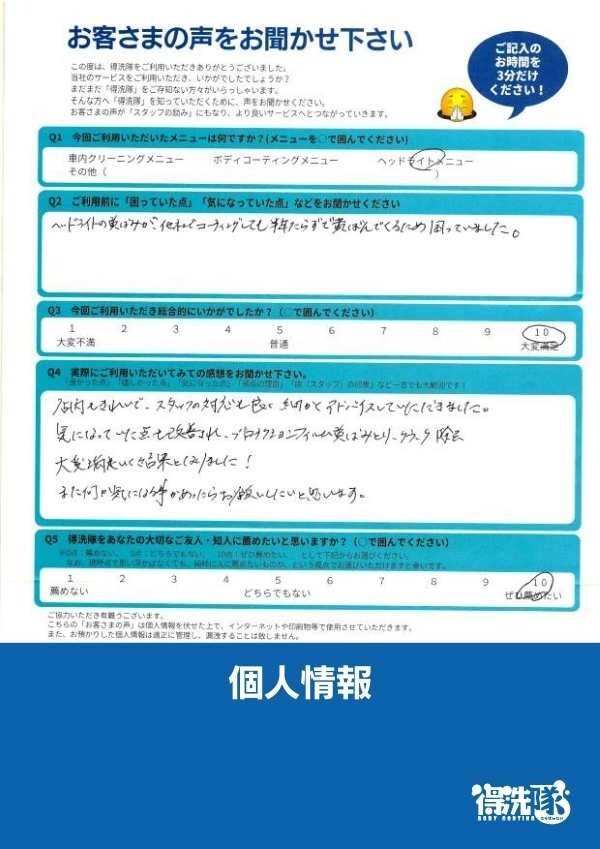 お客さまの声をお聞かせ下さい
ご記入の
お時間を
3分だけ
ください!
この度は、得洗隊をご利用いただきありがとうございました。
当社のサービスをご利用いただき、いかがでしたでしょうか?
まだまだ「得洗隊」をご存知ない方々がいらっしゃいます。
そんな方へ「得洗隊」を知っていただくために、声をお聞かせください。
お客さまの声が「スタッフの励み」にもなり、より良いサービスへとつながっていきます。
Q1 今回ご利用いただいたメニューは何ですか?(メニューを○で囲んでください)
車内クリーニングメニュー ボディコーティングメニュー ヘッドライトメニュー
その他( )
Q2 ご利用前に「困っていた点」「気になっていた点」などをお聞かせください
ヘッドライトの黄ばみが、他社でコーティングしても半年たらずで黄ばんでくるため困っていました。
Q3 今回ご利用いただき総合的にいかがでしたか?(○で囲んでください)
1 2 3 4 5 6 7 8 9 10
大変不満 普通 大変満足
Q4 実際にご利用いただいてみての感想をお聞かせ下さい。
「良かった点」「嬉しかった点」「気になった点」「安心の理由」「店(スタッフ)の印象」など一言でも大歓迎です!
店内もきれいで、スタッフの対応も良く細かくアドバイスしていただきました。
気になっていた点も改善され、プロテクションフィルム黄ばみとり、クラック除去
大変満足いく結果となりました!
また何か気になる事があったらお願いしたいと思います。
Q5 得洗隊をあなたの大切なご友人・知人に薦めたいと思いますか?(○で囲んでください)
※0点:薦めない、 5点:どちらでもない、 10点:ぜひ薦めたい、 として下記からお選びください。
1 2 3 4 5 6 7 8 9 10
薦めない どちらでもない ぜひ薦めたい
ご協力いただき有難うございます。
こちらの「お客さまの声」は個人情報を伏せた上で、インターネットや印刷物等で使用させていただきます。
また、お預かりした個人情報は適正に管理し、漏洩することは致しません。
個人情報
得洗隊